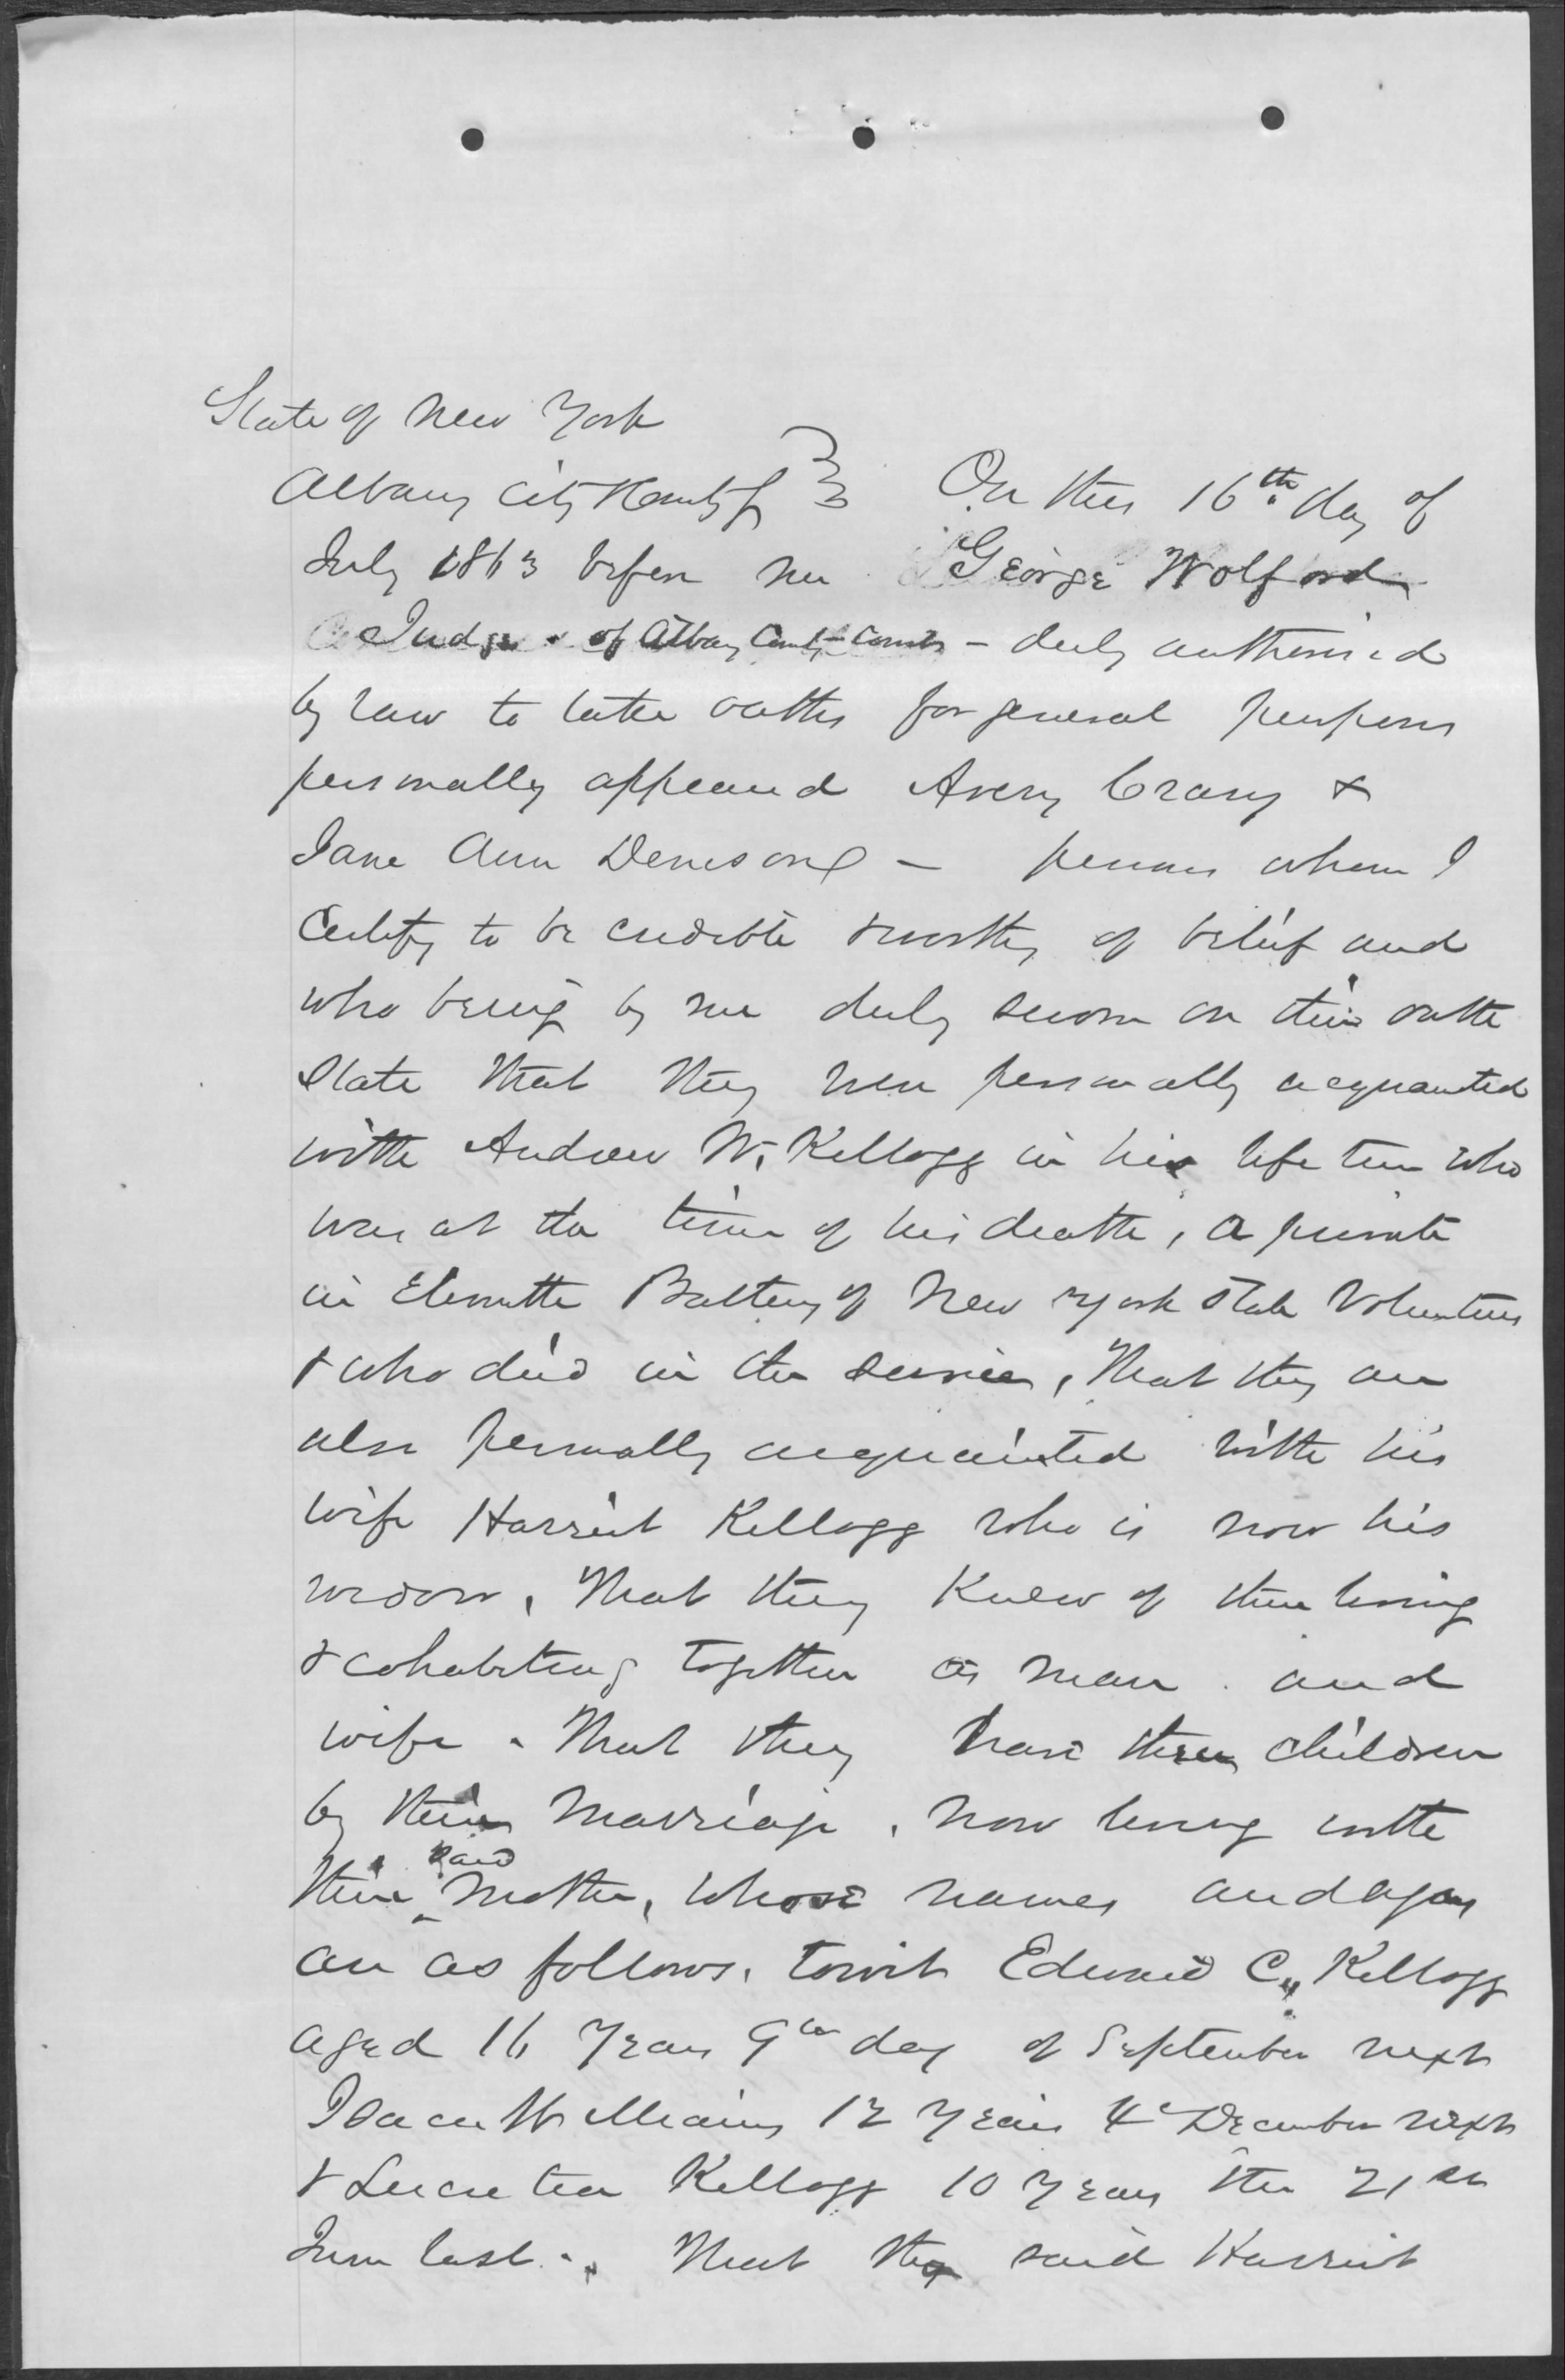 State of New York
Albany City & County ss
On this 16th day of
July 1863 before me George Wolford
a Judge of Albany County Courts - duly authorised
by law to take oaths for general purposes
personally appeared Avery Crary &
Jane Ann Denison - persons whom I
Certify to be credible & worthy of belief and
who being by me duly sworn on their oath
State that they were personally acquainted
with Andrew W. Kellogg in his life time who
was at the time of his death, a private
in Eleventh Battery of New York State Volunteers
& who died in the service, That they are
also personally acquainted with his
wife Harriet Kellogg who is now his
widow, That they knew of their living
& cohabiting together as man and
wife. That they have three children
by their marriage, now living with
their said Mother, whose names and ages
are as follows, towit Edward C. Kellogg
aged 16 years 9th day of September next
12 years 4th December next
& Lucretia Kellogg 10 years the 21st
June last. That the said Harriet